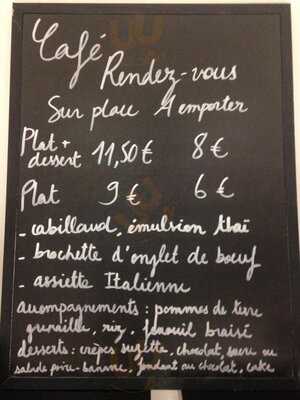 Café
Rendez-vous
Sur place A emporter
Plat + dessert 11,50€ 8€
Plat 9€ 6€
- cabillaud, émulsion thaï
- brochette d'onglet de boeuf
- assiette Italienne
accompagnements : pommes de terre
grenaille, riz, fenouil braisé
desserts : crêpes suzette, chocolat, sucre ou
salade poire-banane, fondant au chocolat, cake